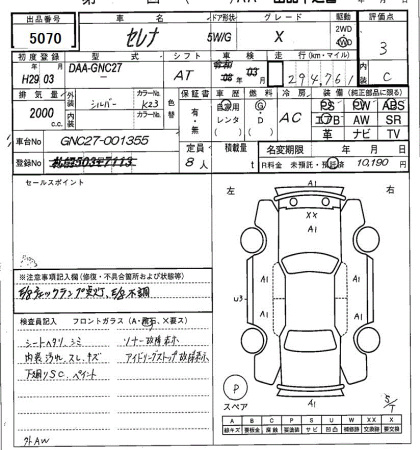 出品番号 車名 ドア形状 グレード 駆動 評価点
5070 セレナ 5W/G X 2WD 4WD 3
初度登録 型式 シフト 車検 走行(km・マイル)
H29 03 DAA-GNC27 AT 08年 03月 294,761 C
排気量 外装 カラーNo. 色替 保証書 車歴 燃料 冷房 装備(純正部品に限る)
2000 c.c. シルバー K23 有・無 自家用 レンタ G D AC PS PW ABS
内装 カラーNo. エアB AW SR
革 ナビ TV
車台No GNC27-001355 定員 積載量 名変期限 年 月 日
登録No 8人 t R料金 未預託・預託済 10,190円
セールスポイント
左 右
A1
XX
A1
A1 A1
U3
A1 A1
A1
※注意事項記入欄(修復・不具合箇所および状態等)
E/gチェックランプ点灯、E/g不調
検査員記入 フロントガラス(A・飛石、×要ス)
シートヘタリ、シミ ソナー故障表示
内装汚れ、スレ、キズ アイドリングストップ故障表示
下廻りSC、ペイント
外AW
P
スペア
5/T
A B C P S U W XX X
線キズ 要板金 腐触 要塗装 サビ 凹凸 補修跡 交換済 要交換